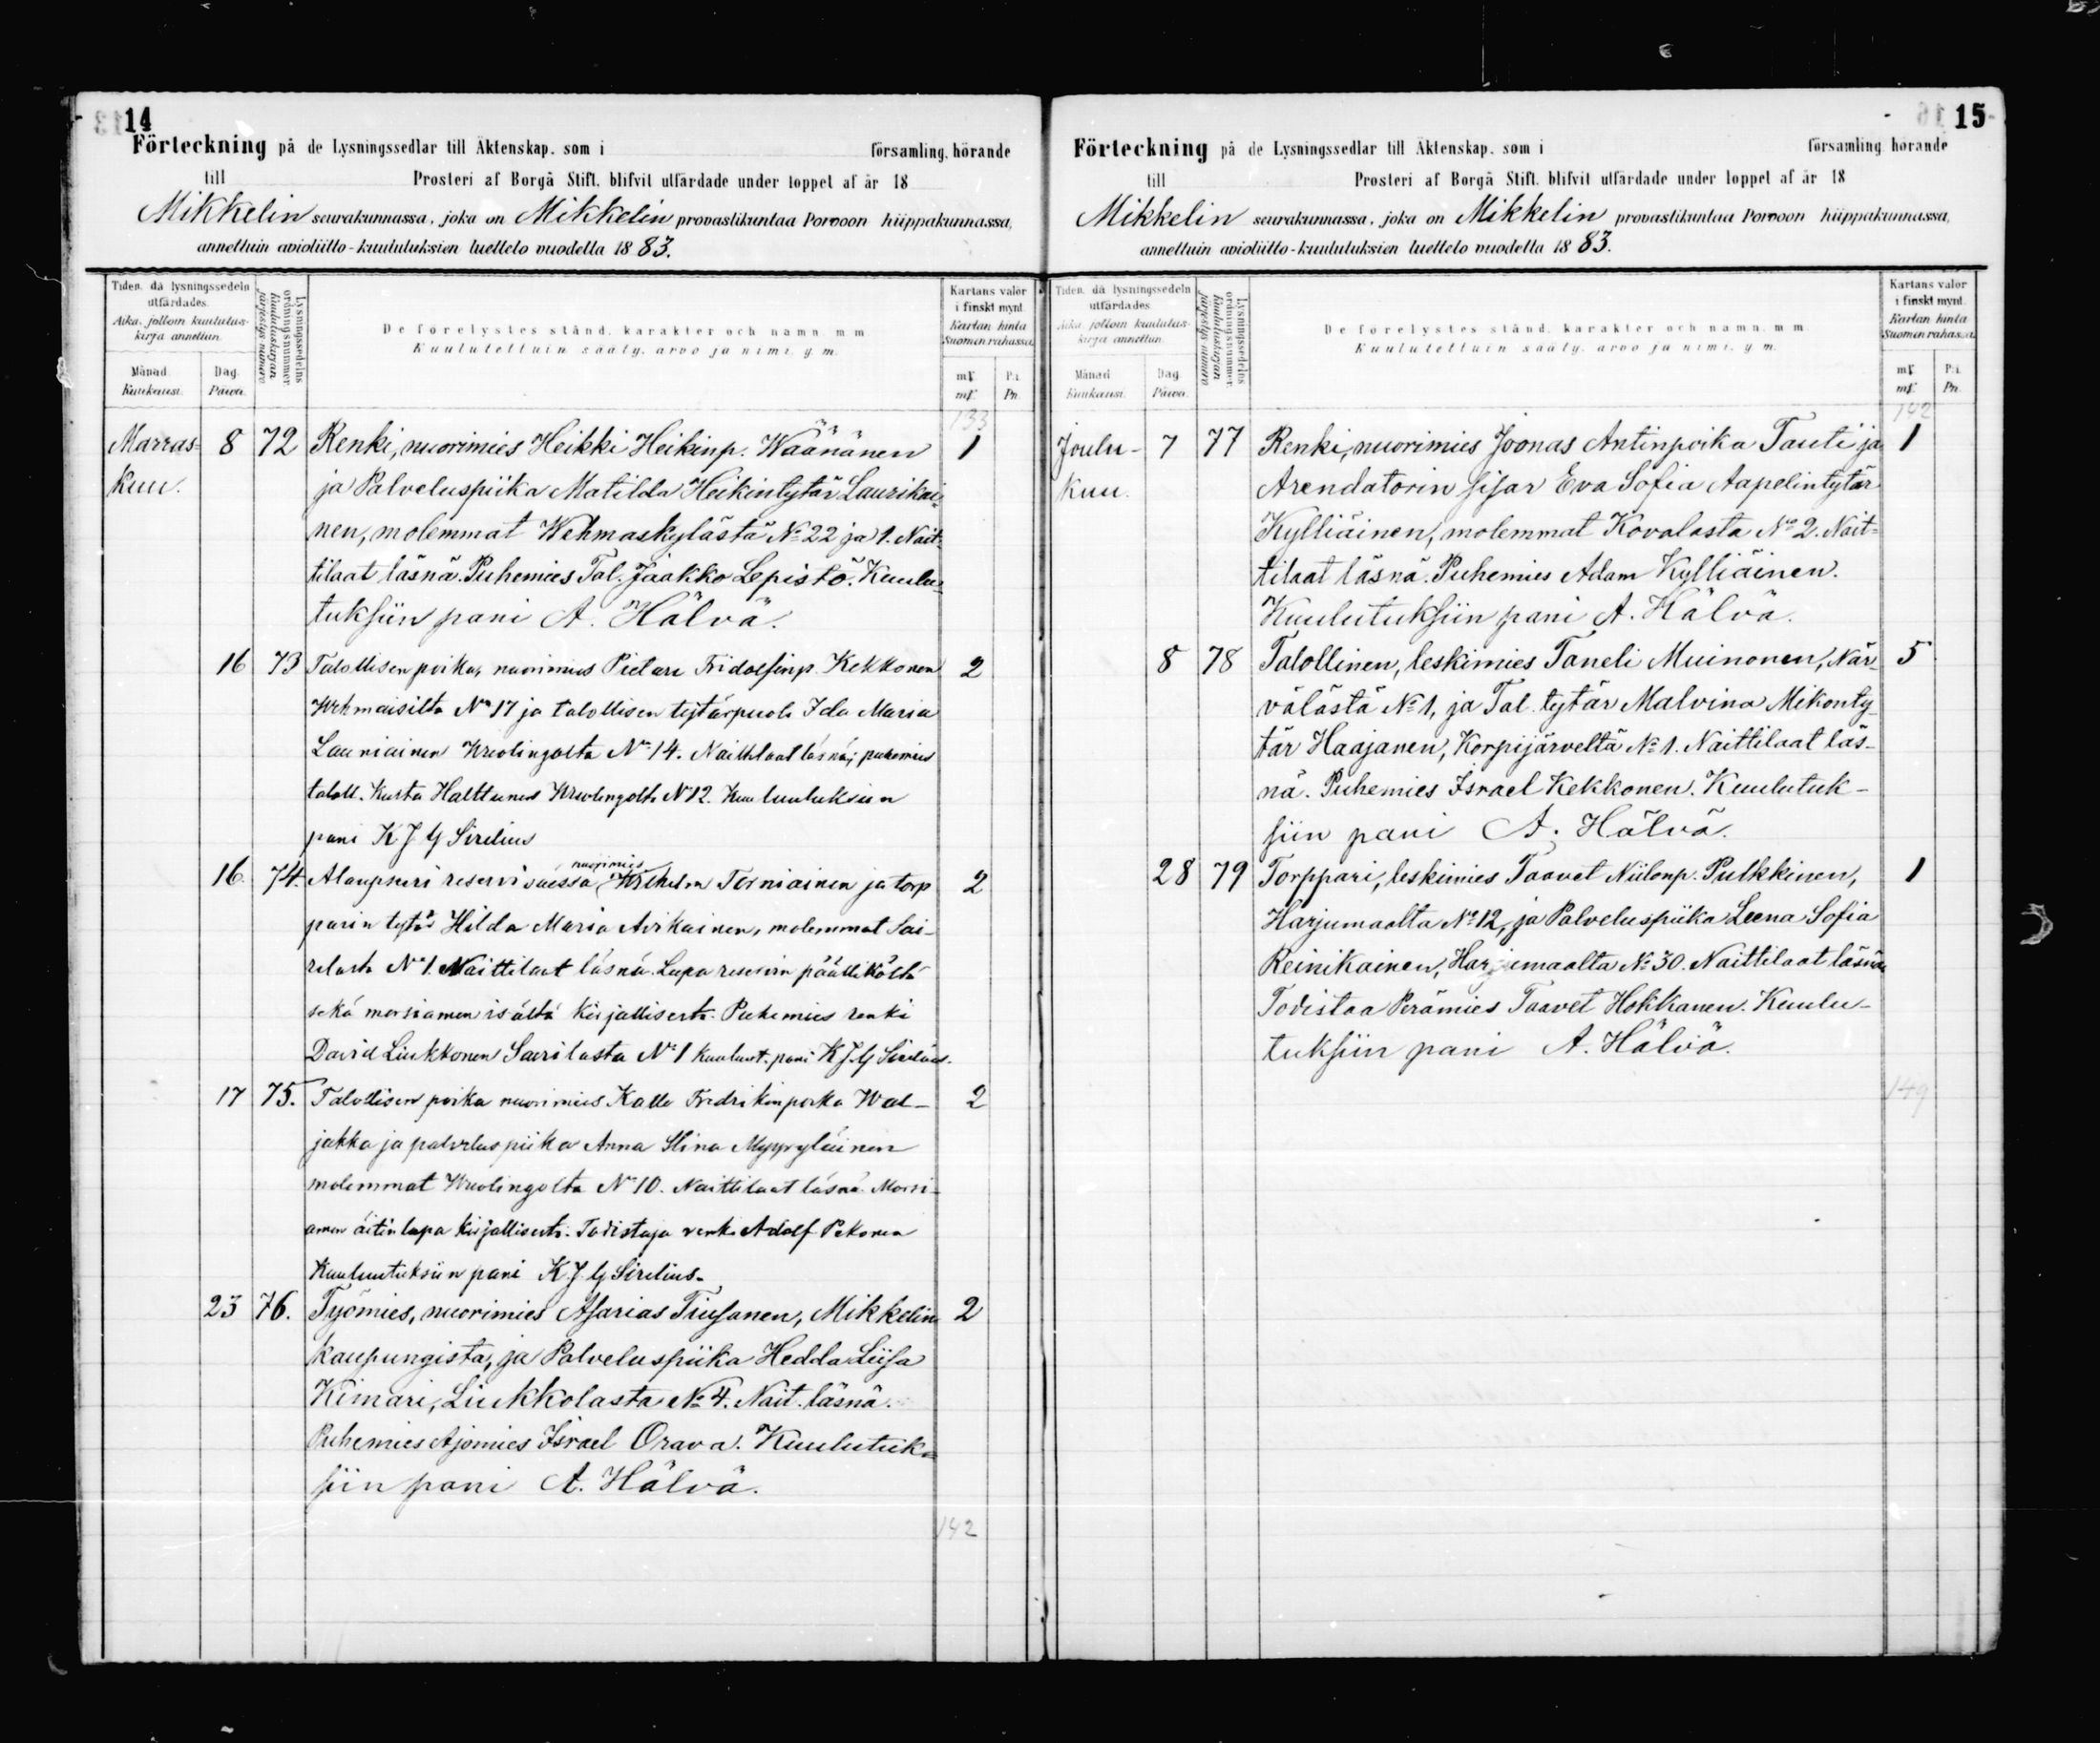 14
Förteckning på de Lysningssedlar till Äktenskap, som i församling, hörande
till Prosteri af Borgå Stift, blifvit utfärdade under loppet af år 18
Mikkelin seurakunnassa, joka on Mikkelin provastikuntaa Porvoon hiippakunnassa,
annettuin avioliitto-kuulutuksien luettelo vuodella 1883.
Tiden, då lysningssedeln utfärdades.
Aika, jolloin kuulutus-kirja annettiin.
Månad. Kuukausi.
Dag. Päivä.
Lysningssedelns ordningsnummer.
Kuulutuskirjan järjestys-numero
De förelystes stånd, karakter och namn, m. m.
Kuulutettuin sääty, arvo ja nimi, y. m.
Kartans valör i finskt mynt.
Kartan hinta Suomen rahassa.
mk. P:i.
mk. Pn.
133
Marras- 8 72 Renki, nuorimies Heikki Heikinp. Wäänänen 1
kuu. ja Palveluspiika Matilda Heikintytär Laurikai-
nen, molemmat Wehmaskylästä No 22 ja 1. Nait-
tilaat läsnä. Puhemies Tal. Jaakko Lepistö. Kuulu-
tuksiin pani A. Hälvä.
16 73 Talollisen poika, nuorimies Pietari Fridolfinp. Kekkonen 2
Wehmaisilta No 17 ja talollisen tytärpuoli Ida Maria
Launiainen Wuolingolta No 14. Naittilaat läsnä; puhemies
taloll. Kusta Halttunen Wuolingolta No 12. Kuuluutuksiin
pani K J G Sirelius
nuorimies
16. 74. Alaupseri reservi väessä Wilhelm Torniainen ja torp 2
parin tytär Hilda Maria Avikainen, molemmat Sai-
rilasta No 1. Naittilaat läsnä. Lupa reservin päälliköltä
sekä morsiamen isältä kirjallisesti. Puhemies renki
David Liukkonen Sairilasta No 1 Kuuluut. pani K J G Sirelius.
17 75. Talollisen poika nuorimies Kalle Fredrikinpoika Wal- 2
jakka ja palveluspiika Anna Stina Myyryläinen
molemmat Wuolingolta No 10. Naittilaat läsnä. Morsi-
amen äitin lupa kirjallisesti. Todistaja renki Adolf Pekonen
Kuuluutuksiin pani K. J. G Sirelius.
23 76. Työmies, nuorimies Asarias Tiusanen, Mikkelin 2
kaupungista, ja Palveluspiika Hedda Liisa
Kimari, Liukkolasta No 4. Nait. läsnä.
Puhemies Ajomies Israel Orava. Kuulutuk-
siin pani A. Hälvä.
142
15
Förteckning på de Lysningssedlar till Äktenskap, som i församling hörande
till Prosteri af Borgå Stift, blifvit utfärdade under loppet af år 18
Mikkelin seurakunnassa, joka on Mikkelin provastikuntaa Porvoon hiippakunnassa,
annettuin avioliitto-kuulutuksien luettelo vuodella 1883.
Tiden, då lysningssedeln utfärdades.
Aika, jolloin kuulutus-kirja annettiin.
Månad. Kuukausi.
Dag. Päivä.
Lysningssedelns ordningsnummer.
Kuulutuskirjan järjestys-numero
De förelystes stånd, karakter och namn, m. m.
Kuulutettuin sääty, arvo ja nimi, y m.
Kartans valör i finskt mynt.
Kartan hinta Suomen rahassa.
mk. P:i.
mk. Pn.
142
Joulu- 7 77 Renki, nuorimies Joonas Antinpoika Tauti ja 1
kuu. Arendatorin sisar Eva Sofia Aapelintytär
Kylliäinen, molemmat Kovalasta No 2. Nait-
tilaat läsnä. Puhemies Adam Kylliäinen.
Kuulutuksiin pani A. Hälvä.
8 78 Talollinen, leskimies Taneli Muinonen, När- 5
välästä No 1, ja Tal. tytär Malvina Mikonty-
tär Haajanen, Korpijärveltä No 1. Naittilaat läs-
nä. Puhemies Israel Kekkonen. Kuulutuk-
siin pani A. Hälvä.
28 79 Torppari, leskimies Taavet Niilonp. Pulkkinen, 1
Harjumaalta No 12, ja Palveluspiika Leena Sofia
Reinikainen, Harjumaalta No 30. Naittilaat läsnä
Todistaa Perämies Taavet Hokkanen. Kuulu-
tuksiin pani A. Hälvä.
149